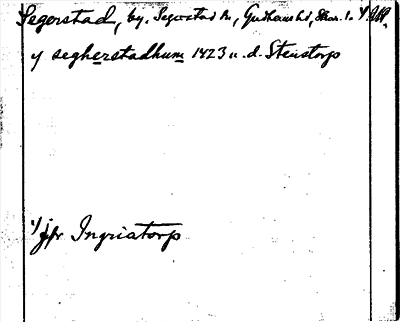 Segerstad, by. Segerstad sn, Gudhems hd, Skar. l.
y segherstadhum 1423 u. d. Stenstorp
1/ jfr Ingriatorp